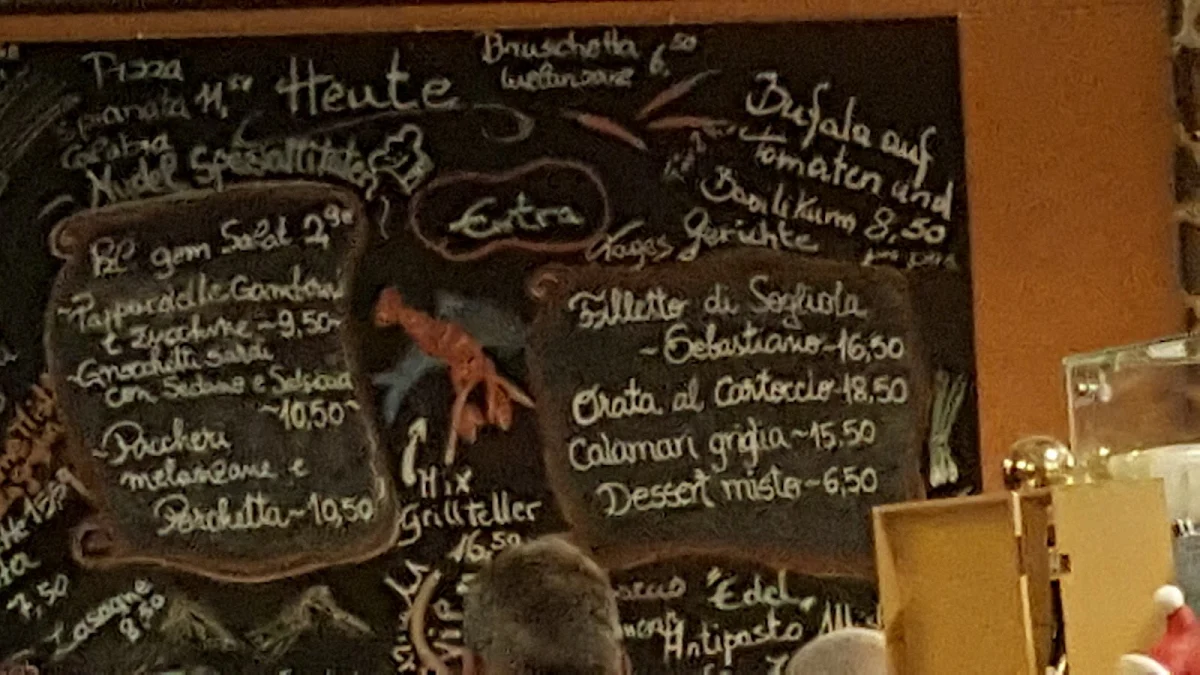 Pizza
Spianata 11,50
Calabria
Heute
Bruschetta 6,50
Melanzane
Bufala auf
Tomaten und
Basilikum 8,50
Nudel Spezialitäten
Extra
Tages Gerichte
gem Salat 2,90
~Pappardelle Gamberi
e Zucchine ~ 9,50~
~Gnocchetti Sardi
con Sedano e Salsiccia
~10,50~
~Paccheri
melanzane e
Porchetta~10,50
Filletto di Sogliola
~Sebastiano~16,50
Orata al Cartoccio~18,50
Calamari griglia~15,50
Dessert misto~6,50
Mix
Grillteller
16,50
7,50
Lasagne
8,50
"Edel
Antipasto